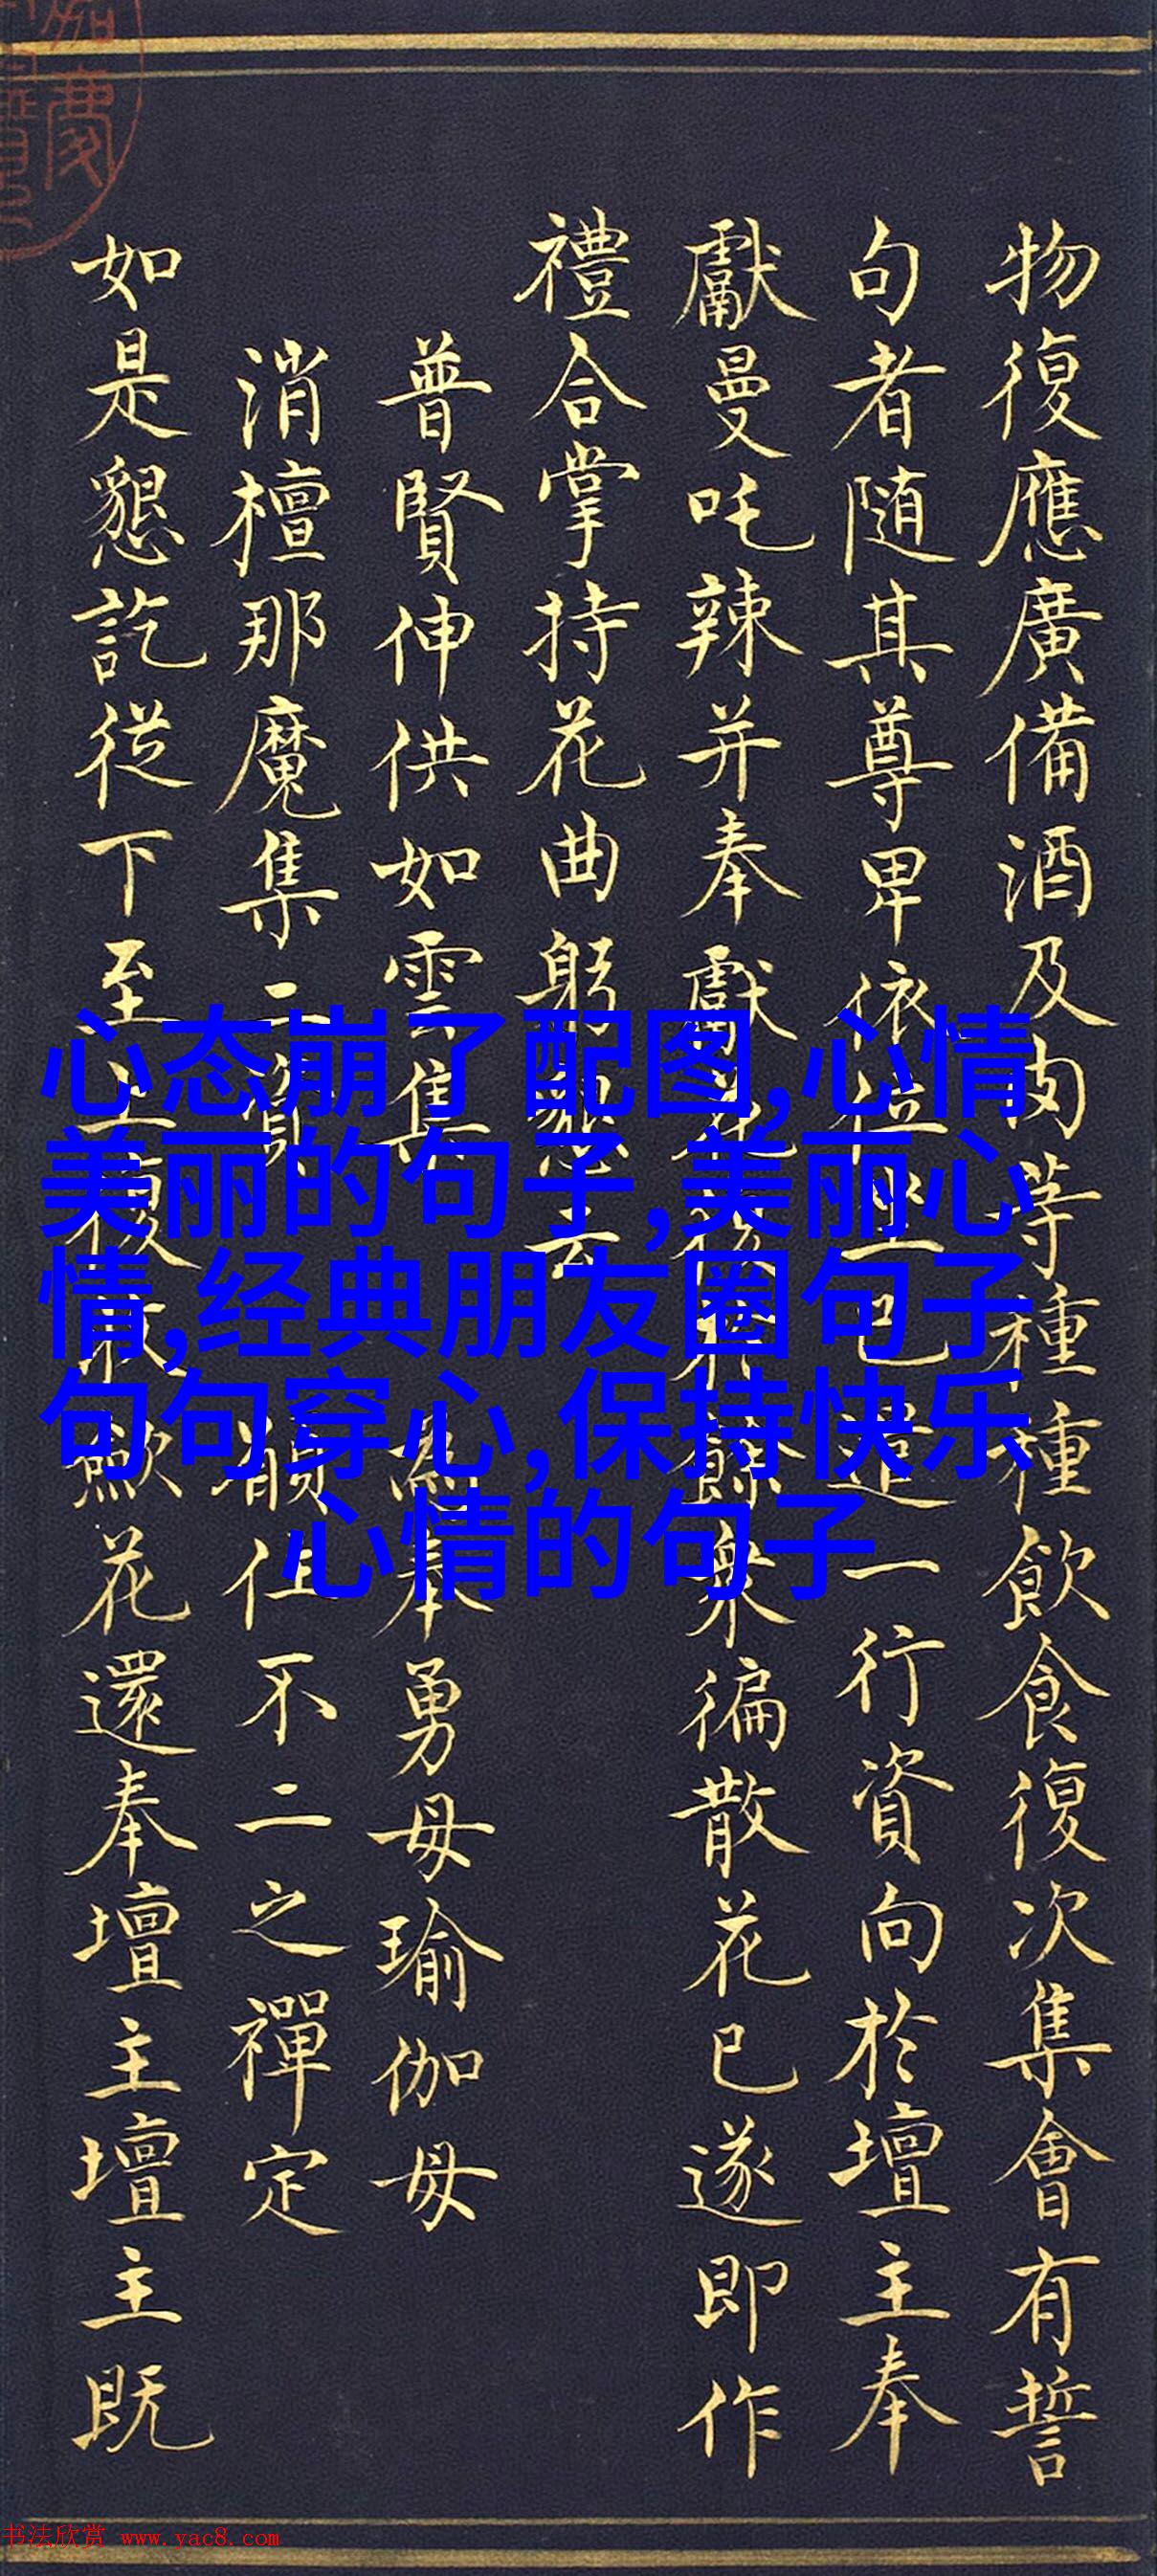 物復應廣備酒及肉等種種飲食復次集會有誓
句者随其尊卑依位坐已造一行資向於壇主奉
獻曼吒辣并奉獻花後衆徧散花已遂即作
禮合掌持花曲躬懇去
普賢伸供如雲集
為奉勇母瑜伽母
消檀那魔集二資
願住不二之禪定
如是懇訖從下至上復收歛花還奉壇主壇主既
心态崩了配图,心情
美丽的句子,美丽心
情,经典朋友圈句子
句句穿心,保持快乐
心情的句子
书法欣赏 www.yac8.com